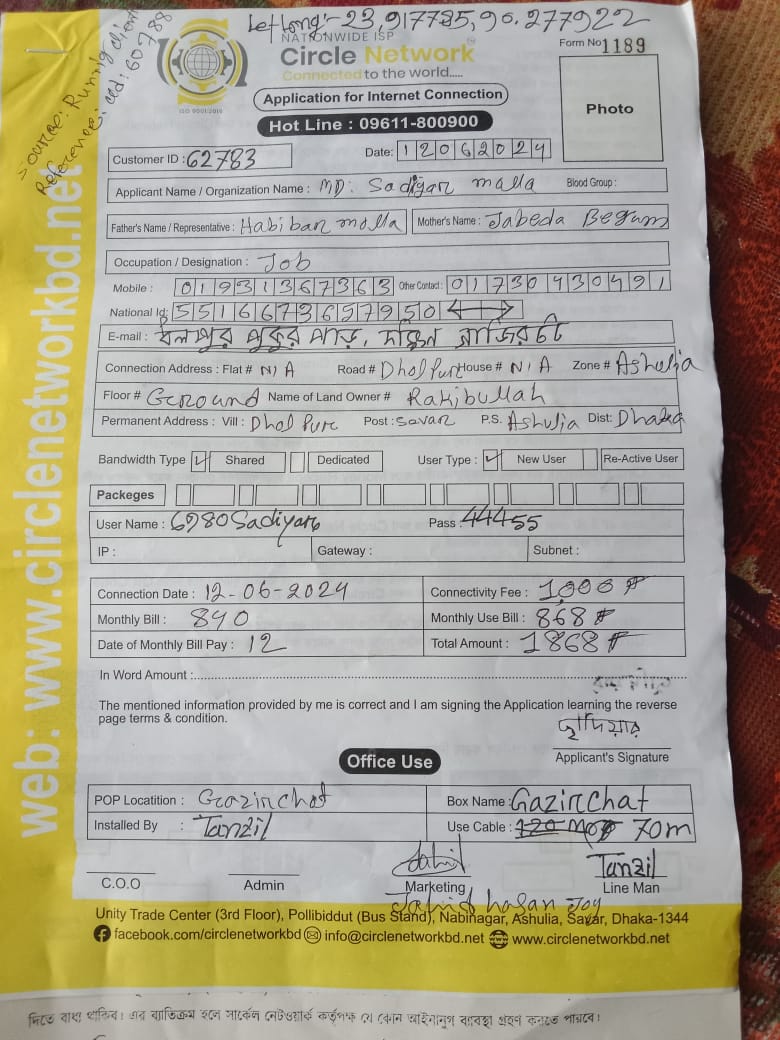 Let Long:- 23.917735, 90.277922
Source: Running client
Reference: cid: 60788
NATIONWIDE ISP
Circle Network
Connected to the world.....
ISO 9001:2015
Form No 1189
Application for Internet Connection
Photo
Hot Line : 09611-800900
Customer ID : 62783
Date: 12062024
Applicant Name / Organization Name : MD: Sadiyar molla Blood Group :
Father's Name / Representative : Habibar molla Mother's Name : Jabeda Begum
Occupation / Designation : Job
Mobile : 01931367363 Other Contact : 01730430491
National Id: 5516673657950
E-mail : ধলপুর পুকুর পাড়, দক্ষিন গাজিরচট
Connection Address : Flat # N/A Road # Dhol Pur House # N/A Zone # Ashulia
Floor # Ground Name of Land Owner # Rakibullah
Permanent Address : Vill : Dhol Pur Post : Savar P.S. Ashulia Dist: Dhaka
Bandwidth Type Shared Dedicated User Type : New User Re-Active User
Packeges
User Name : 6980Sadiyar Pass : 44455
IP : Gateway : Subnet :
Connection Date : 12-06-2024 Connectivity Fee : 1,000 ৳
Monthly Bill : 840 Monthly Use Bill : 868 ৳
Date of Monthly Bill Pay : 12 Total Amount : 1868 ৳
In Word Amount :
The mentioned information provided by me is correct and I am signing the Application learning the reverse
page terms & condition.
ছাদিয়ার
Applicant's Signature
Office Use
POP Locatition : Gazirchat Box Name : Gazirchat
Installed By : Tanzil Use Cable : 70m
Jahid Tanzil
C.O.O Admin Marketing Line Man
Jahid hasan Joy
Unity Trade Center (3rd Floor), Pollibiddut (Bus Stand), Nabinagar, Ashulia, Savar, Dhaka-1344
facebook.com/circlenetworkbd info@circlenetworkbd.net www.circlenetworkbd.net
web: www.circlenetworkbd.net
দিতে বাধ্য থাকিব। এর ব্যাতিক্রম হলে সার্কেল নেটওয়ার্ক কর্তৃপক্ষ যে কোন আইনানুগ ব্যবস্থা গ্রহণ করতে পারবে।